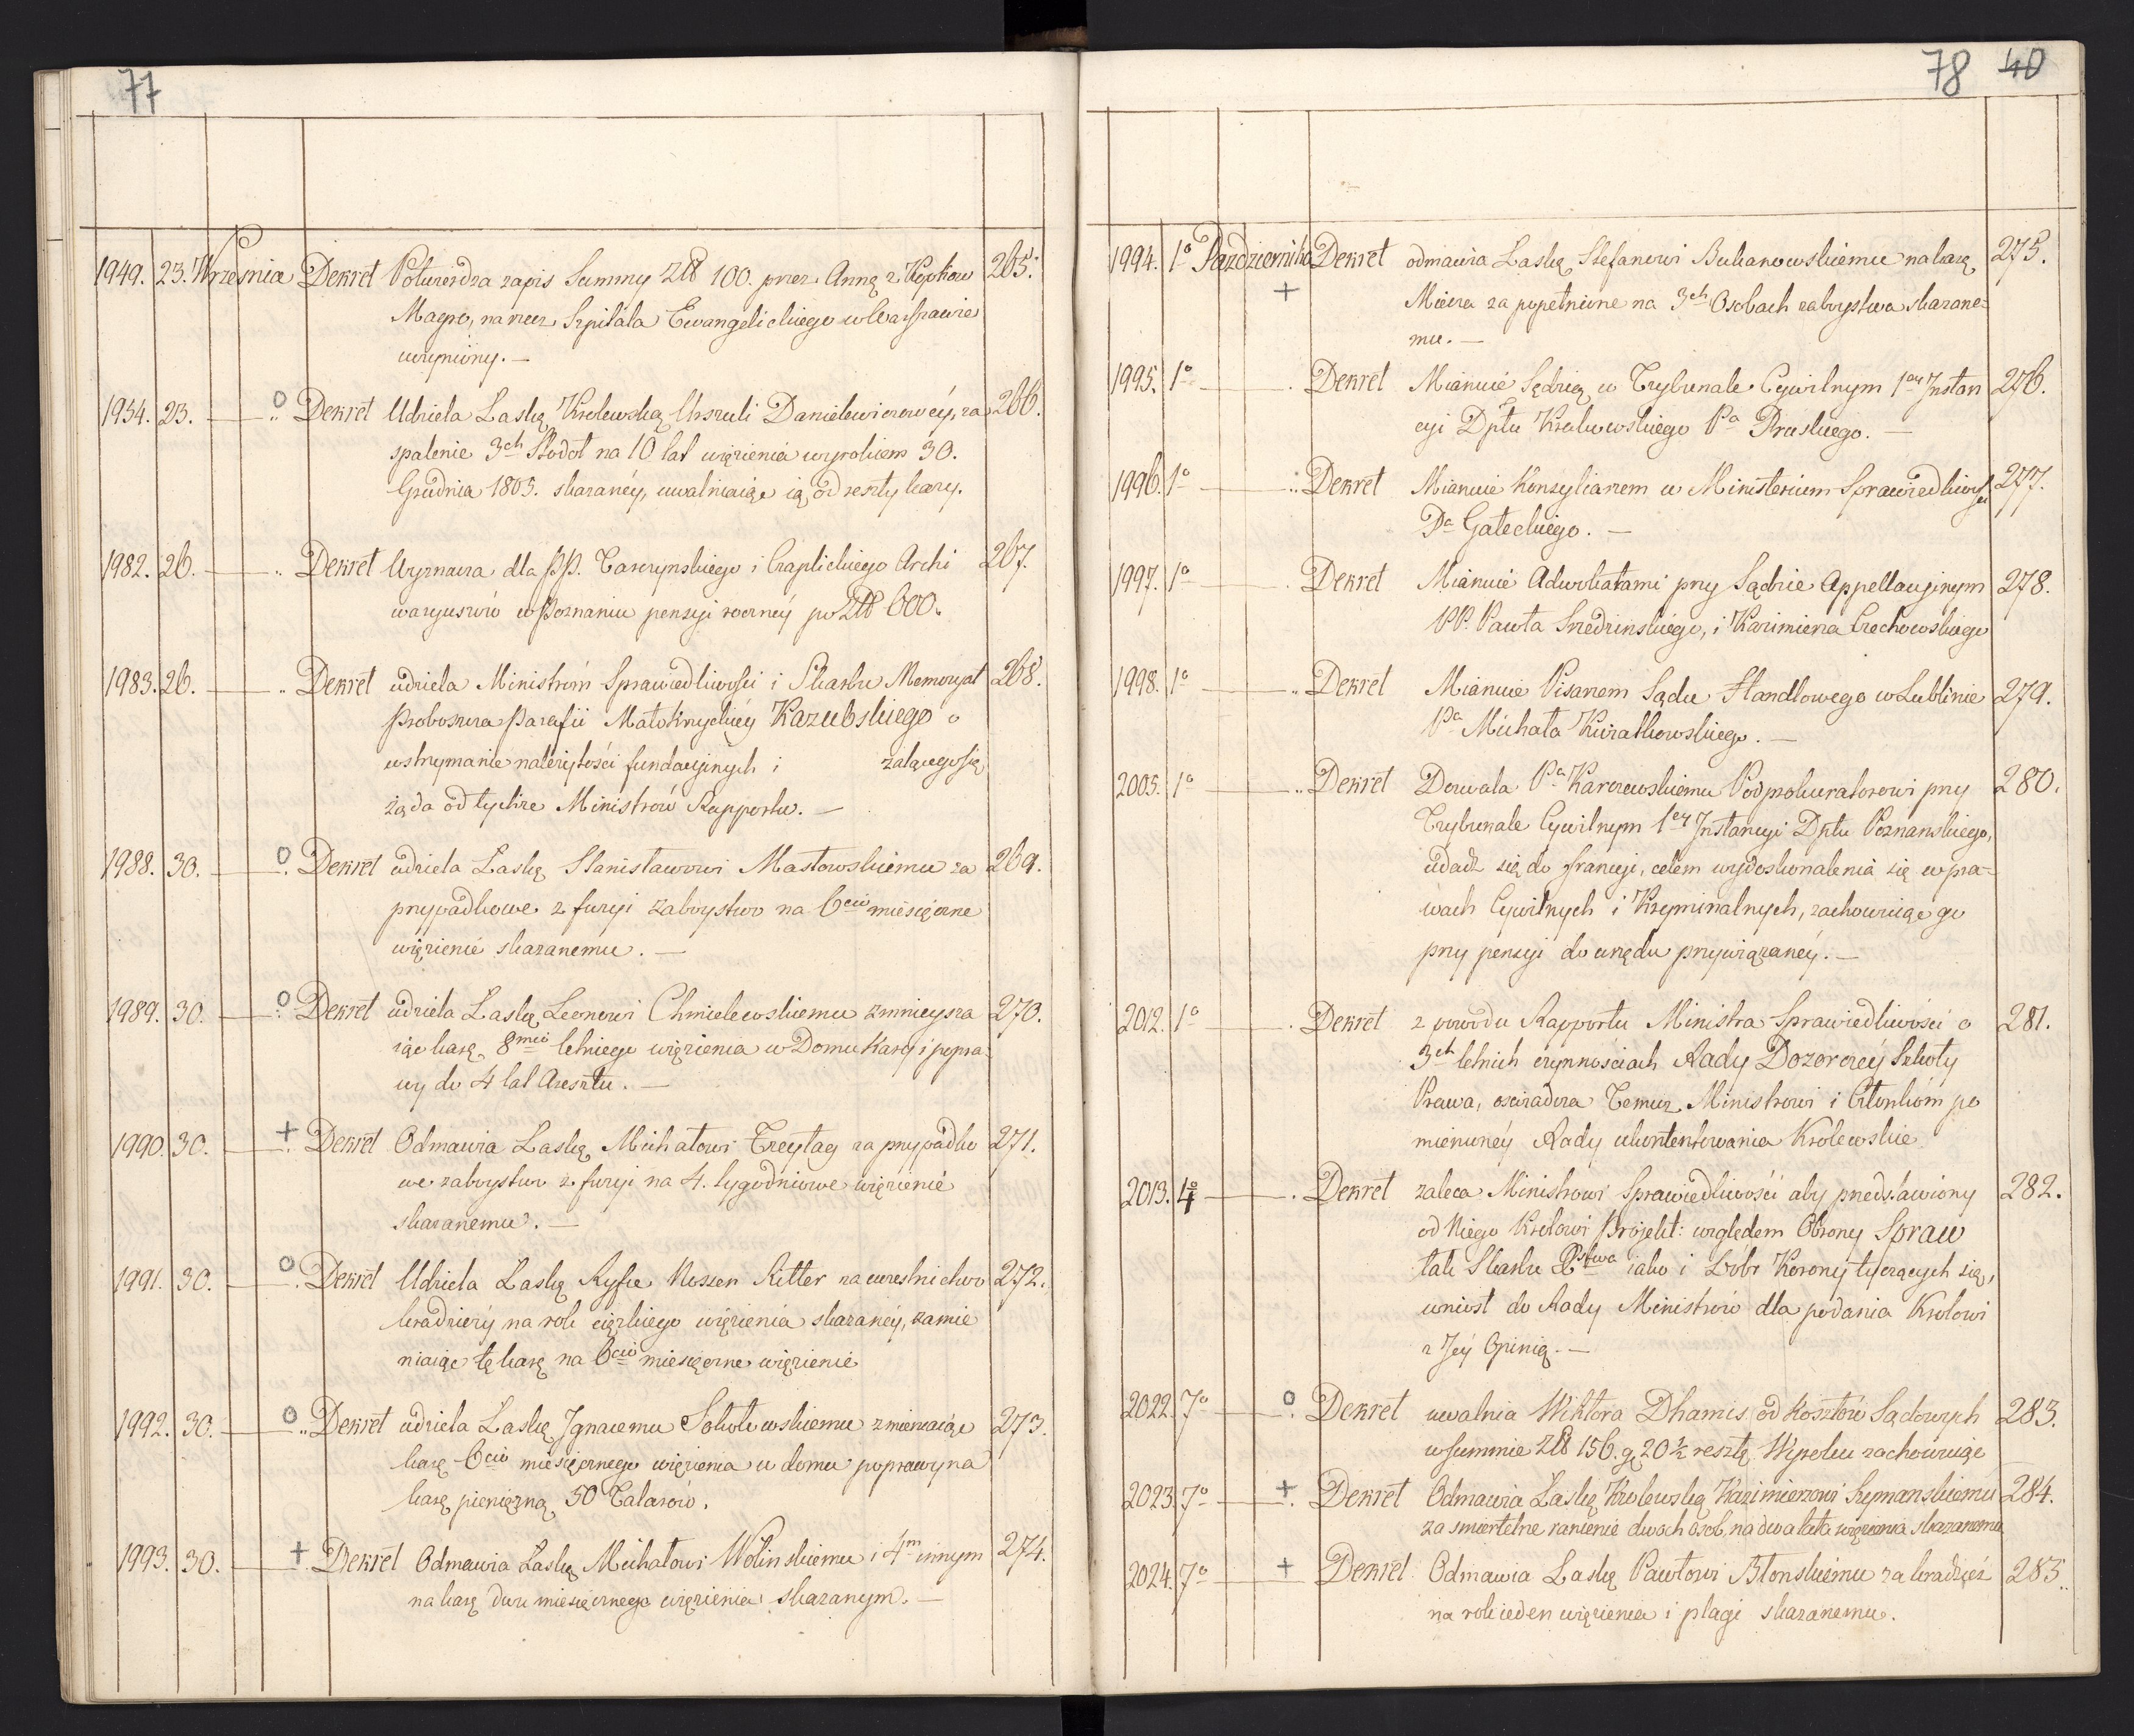 77
1949. 23. Września Dekret Potwierdza zapis Summy Złł 100. przez Annę z Kępkow 265.
Magro, na rzecz Szpitala Ewangelickiego w Warszawie
uczyniony. —
1954. 23. — o Dekret Udziela Laskę Krolewską Urszuli Danielewiczowéy, za 266.
spalenie 3ch Stodoł na 10 lat więzienia wyrokiem 30.
Grudnia 1805. skazanéy, uwalniaiąc ią od reszty kary.
1982. 26. — Dekret Wyznacza dla PP. Taczynskiego i Czaplickiego Archi 267.
waryuszów w Poznaniu pensyi roczney po Złł 600.
1983. 26. — Dekret udziela Ministróm Sprawiedliwości i Skarbu Memoryał 268.
Proboszcza Parafii Małoknyckiéy Kazubskiego o
wstrzymanie należytości fundacyinych i zalącego się
żąda od tychże Ministrów Rapportu. —
1988. 30. — o Dekret udziela Laskę Stanisławowi Masłowskiemu za 269.
przypadkowe z furyi zaboystwo na 6cio miesięczne
więzienie skazanemu. —
1989. 30. — o Dekret udziela Laskę Leonowi Chmielewskiemu zmnieysza 270.
iąc karę 8mio letniego więzienia w Domu Kary i popra-
wy do 4 lat Aresztu. —
1990. 30. — + Dekret Odmawia Laskę Michałowi Treytag za przypadko 271.
we zabóystwo z furyi na 4. tygodniowe więzienie
skazanemu. —
1991. 30. — o Dekret Udziela Laskę Ryfce Noszen Ritter za uczestnictwo 272.
kradzieży na rok ciężkiego więzienia skazanéy, zamie
niaiąc tę karę na 6cio miesięczne więzienie
1992. 30. — o Dekret udziela Laskę Ignacemu Sokołowskiemu zmieniaiąc 273.
karę 6cio miesięcznego więzienia w domu poprawy na
karę pieniężną 50 Talarów.
1993. 30. — + Dekret Odmawia Laskę Michałowi Wolinskiemu i 4m innym 274.
na karę dwu miesięcznego więzienia skazanym. —
78 40
1994. 1o Października Dekret odmawia Laskę Stefanowi Bukanowskiemu na karę 275.
+ Miecza za popełnione na 3ch Osobach zaboystwa skazane-
mu. —
1995. 1o — Dekret Mianuie Sędzią w Trybunale Cywilnym 1ey Instan 276.
cyi Dptu Krakowskiego Pa Pruskiego. —
1996. 1o — Dekret Mianuie Konsyliarzem w Ministerium Sprawiedliwości 277.
Pa Gałeckiego. —
1997. 1o — Dekret Mianuie Adwokatami przy Sądzie Appellacyinym 278.
PP. Pawła Srzedzinskiego, i Kazimierza Czechowskiego
1998. 1o — Dekret Mianuie Pisarzem Sądu Handlowego w Lublinie 279.
Pa Michała Kwiatkowskiego. —
2005. 1o — Dekret Dozwala Pu Karczewskiemu Podprokuratorowi przy 280.
Trybunale Cywilnym 1ey Instancyi Dptu Poznanskiego,
udadź się do francyi, celem wydoskonalenia się w pra-
wach Cywilnych i Kryminalnych, zachowuiąc go
przy pensyi do urzędu przywiązanéy. —
2012. 1o — Dekret z powodu Rapportu Ministra Sprawiedliwości o 281.
3ch letnich czynnościach Rady Dozorczéy Szkoły
Prawa, oswiadcza Temuz Ministrowi i Członkóm po
mienionéy Rady ukontentowanie Krolewskie
2013. 4o — Dekret zaleca Ministrowi Sprawiedliwości aby przedstawiony 282.
od Niego Krolowi Projekt: względem Obrony Spraw
tak Skarbu Pstwa iako i Dóbr Korony tyczących się,
wniosł do Rady Ministrów dla podania Krolowi
z Jéy Opinią. —
2022. 7o — o Dekret uwalnia Wiktora Dhamis od Kosztów Sądowych 283.
w summie Złł 156. g 20½ resztę Wyroku zachowuiąc
2023. 7o — + Dekret Odmawia Laskę Krolewską Kazimierzowi Szymanskiemu 284.
za smiertelne ranienie dwoch osob, na dwa lata więzienia skazanemu
2024. 7o — + Dekret Odmawia Laskę Pawłowi Błonskiemu za kradzież 285.
na rok ieden więzienia i plagi skazanemu.